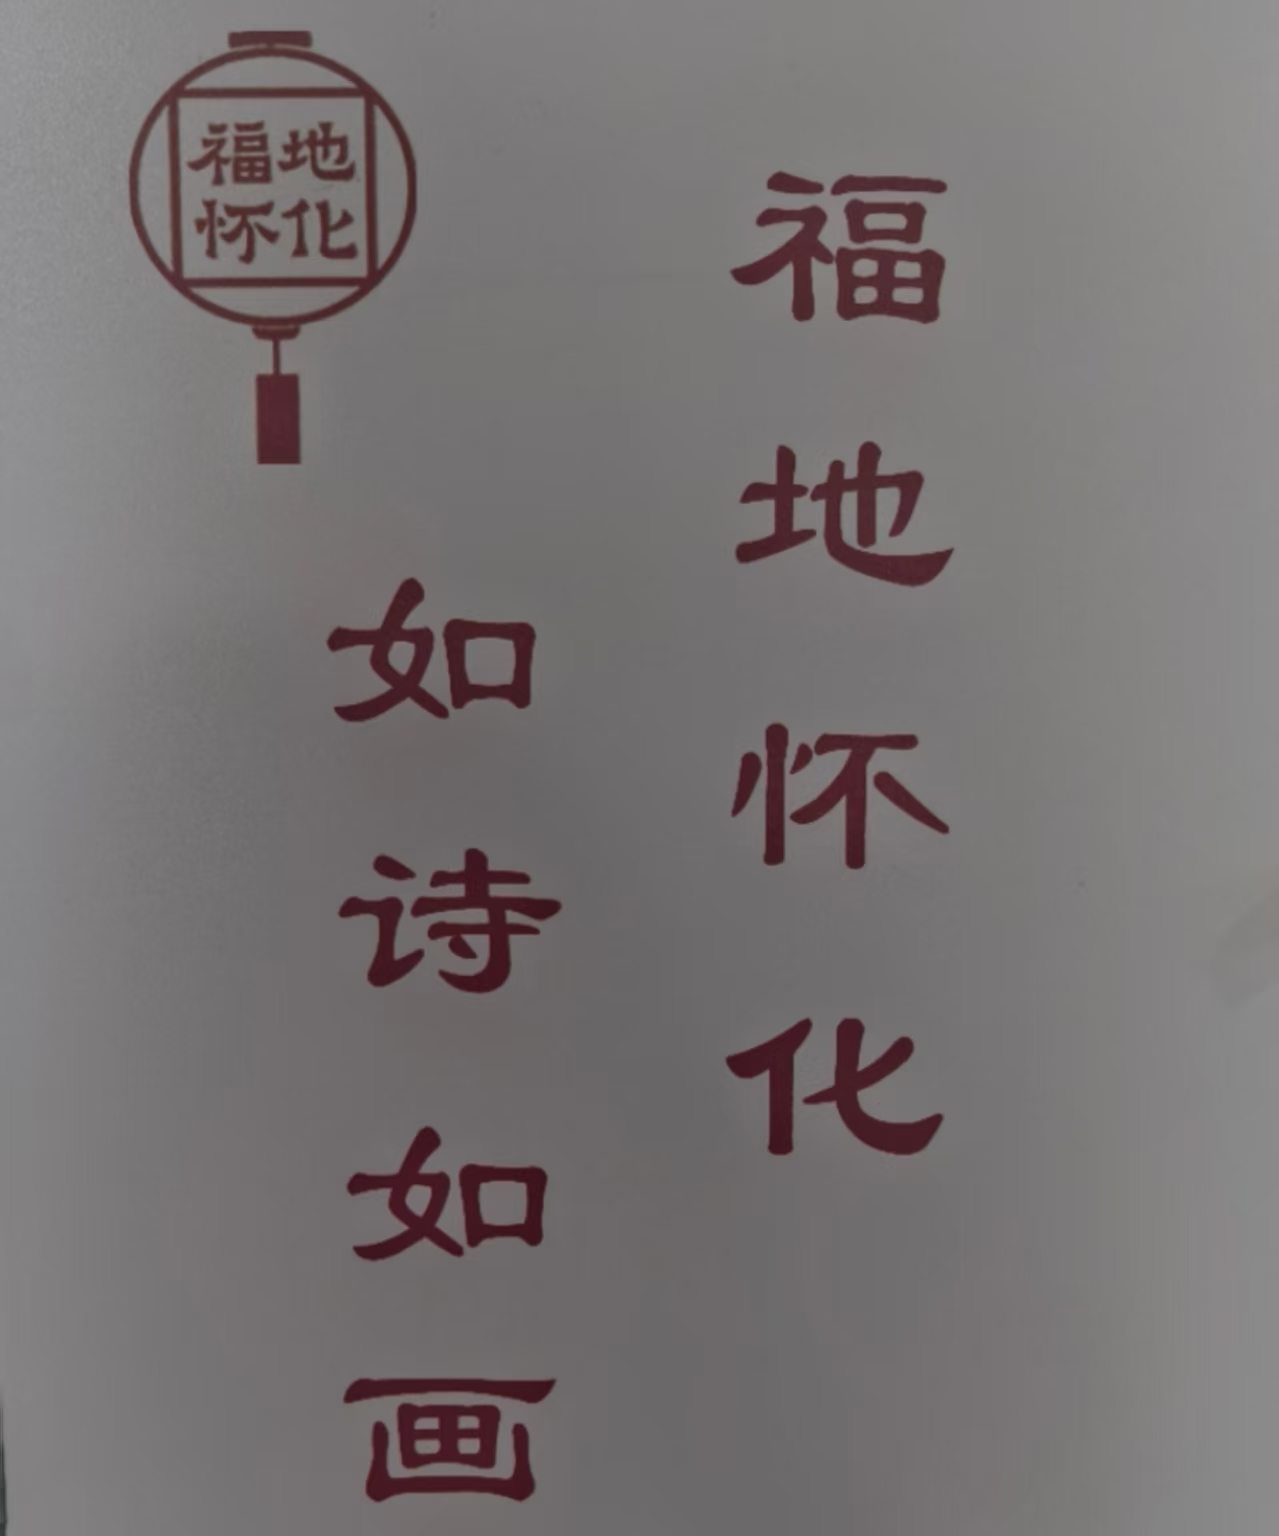 福地
怀化
福地怀化
如诗如画